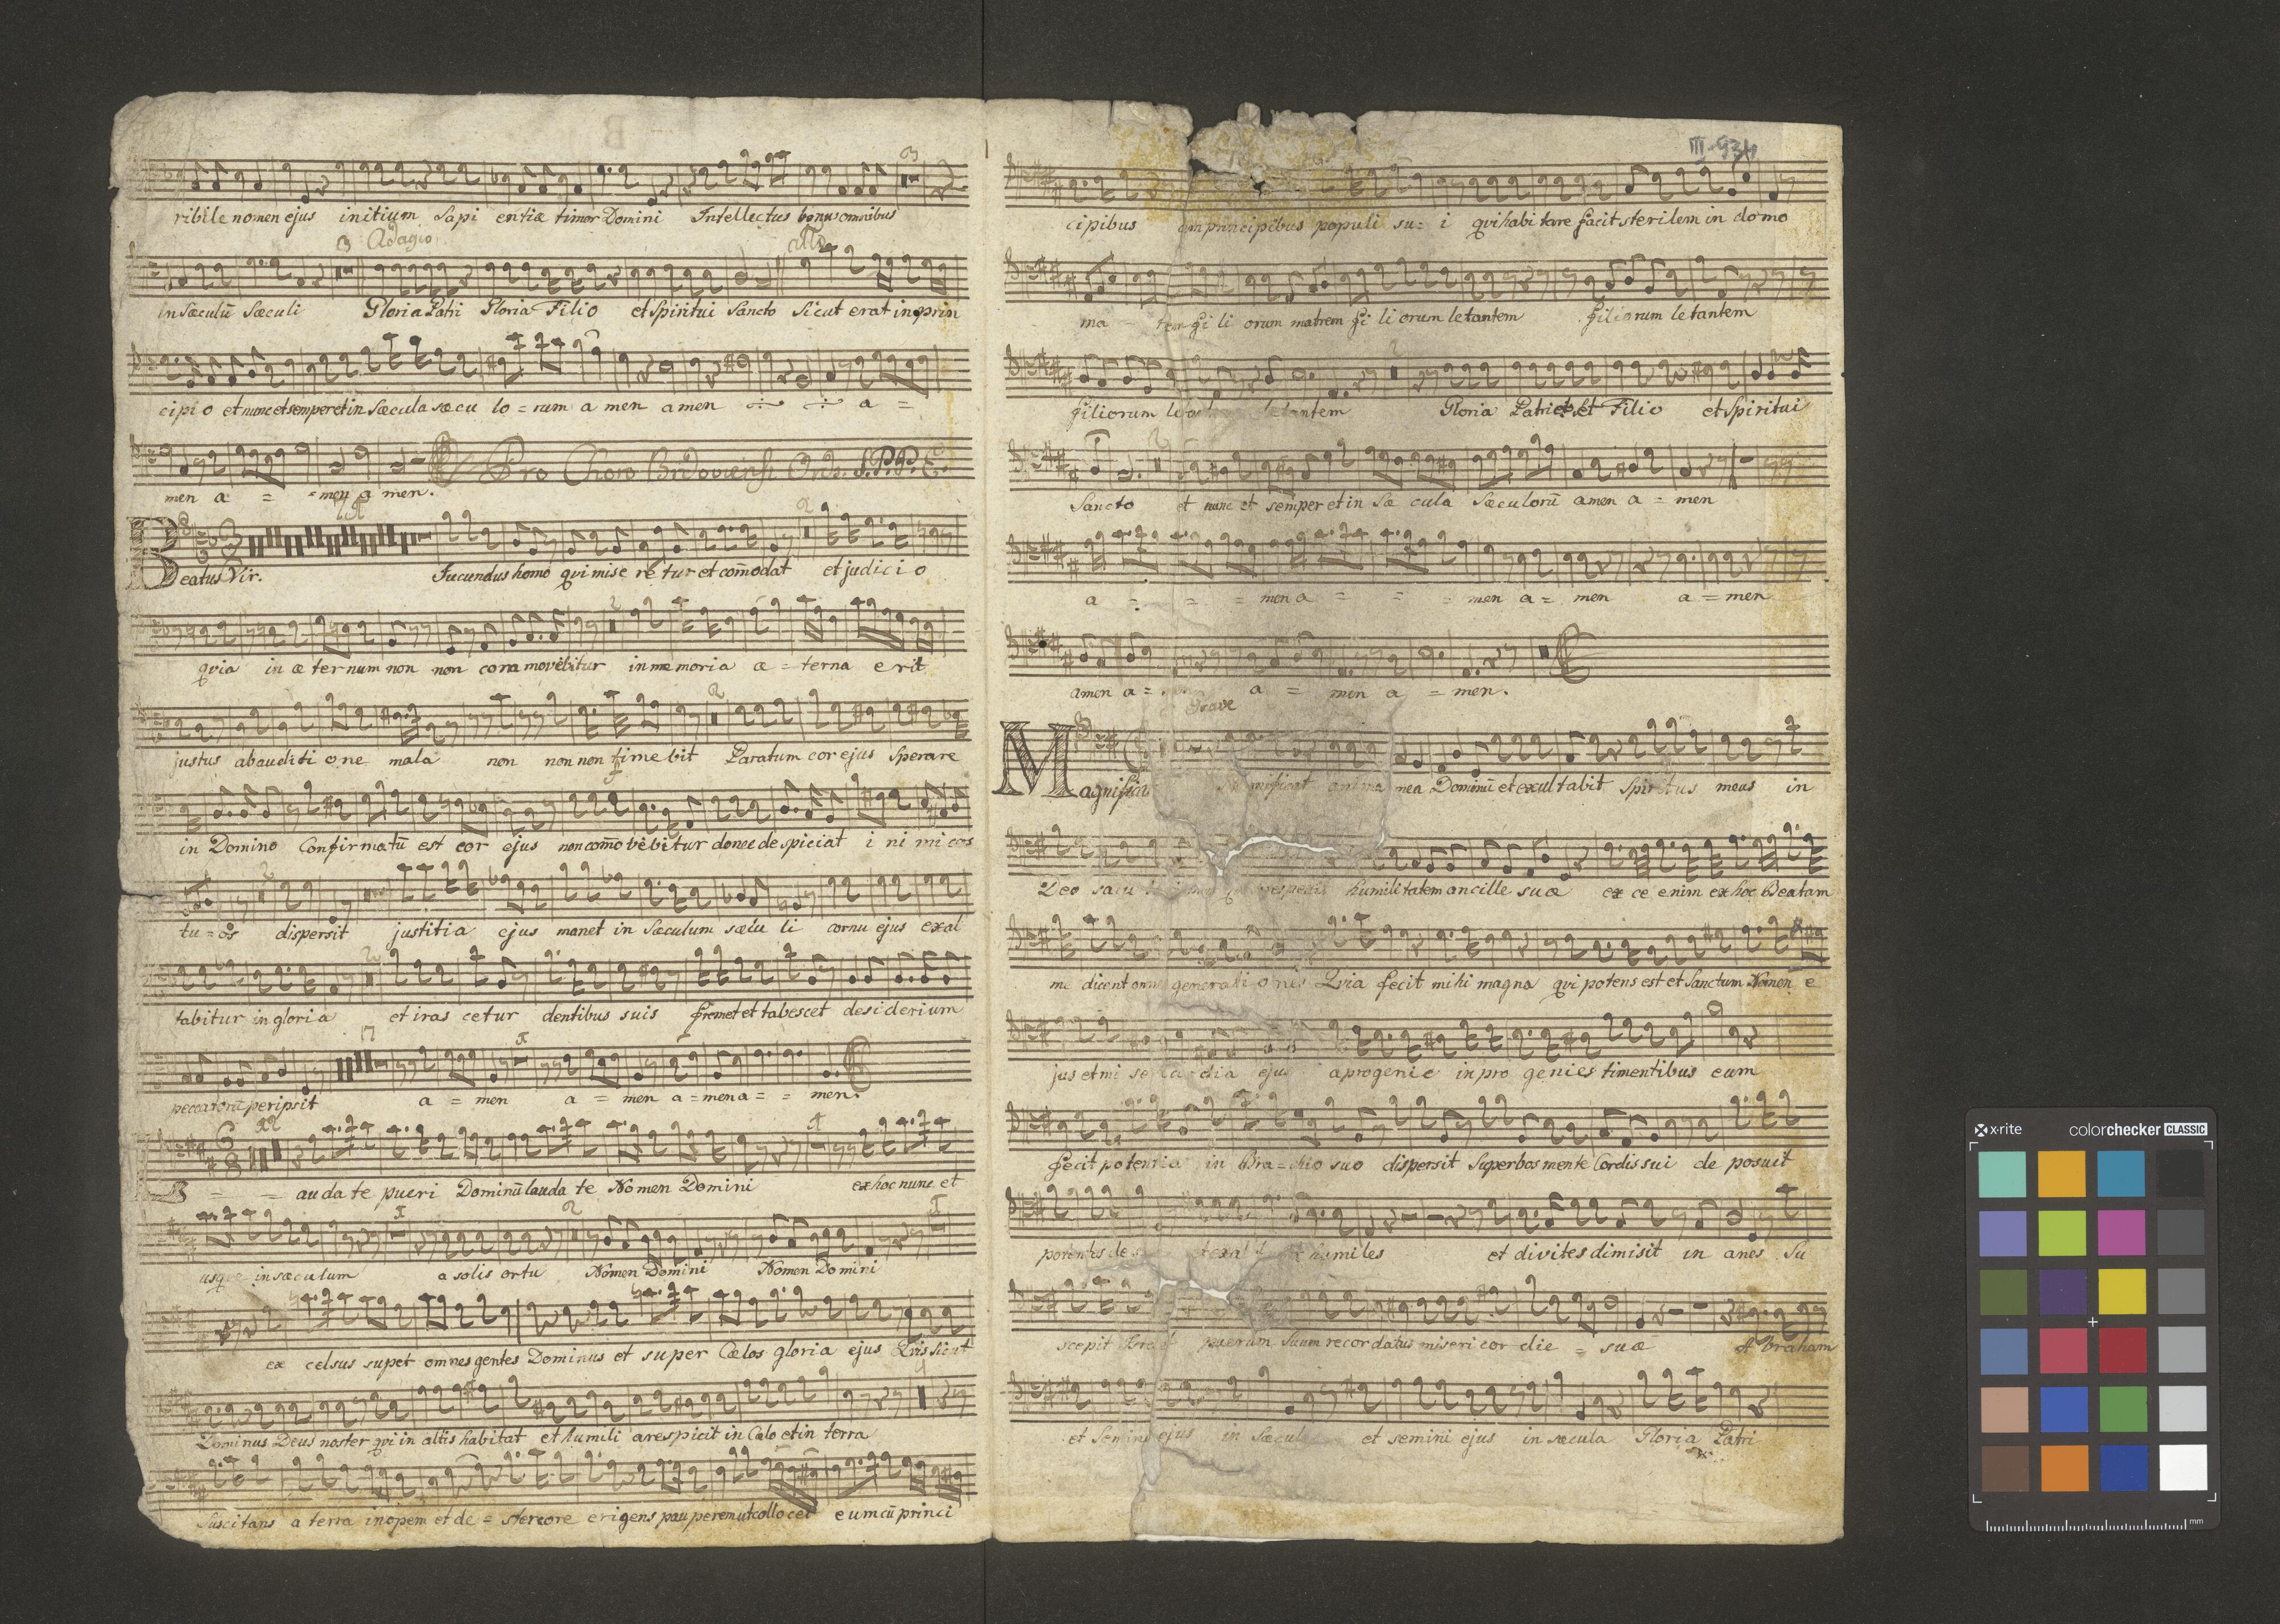 ribile nomen ejus initium Sapi entiæ timor Domini Intellectus bonus omnibus
3 Adagio allo
in Sæculū Sæculi Gloria Patri Gloria Filio et Spiritui Sancto Sicut erat in prin
cipi o et nunc et semper et in Sæcula sæcu lo = rum a men amen a =
men a = = men a men.
Pro Choro
Beatus Vir. Jucundus homo qui mise re tur et com̄odat et judici o
qvia in æ ternum non non com movebitur in me moria æ = terna e rit
justus ab auditi one mala non non non time bit Paratum cor ejus Sperare
in Domino Confirmatū est cor ejus non com̄o vebitur donec de spiciat i ni mi cos
tu = os dispersit justitia ejus manet in Sæculum sæcu li cornu ejus exal
tabitur in gloria et iras cetur dentibus suis fremet et tabescet desiderium
peccatorū peribit a = men a = men a = men a = = men.
L = = auda te pueri Dominū lauda te Nomen Domini ex hoc nunc et
usque in sæculum a solis ortu Nomen Domini Nomen Domini
ex celsus super omnes gentes Dominus et super Cœlos gloria ejus Qvis sicut
Dominus Deus noster qvi in altis habitat et humili a respicit in Cœlo et in terra
Suscitans a terra inopem et de = stercore erigens pau perem ut collocet eum cū princi
III-934
cipibus cum principibus populi su = i qvi habi tare facit sterilem in domo
ma trem fi li orum matrem fi li orum letantem filiorum letantem
filiorum letantem Gloria Patri et Filio et Spiritui
Sancto et nunc et semper et in Sæ cula Sæculorū amen a = men
a = = = men a = = = men a = men a = men
amen a = a = men a = men.
Grave
Magnificat anima mea Dominū et exultabit Spiritus meus in
Deo humilitatem ancille suæ ex ce enim ex hoc Beatam
me dicent generationes Qvia fecit mihi magna qvi potens est et Sanctum Nomen e
jus et mi se ejus a progenie in pro genies timentibus eum
fecit potentia in Bra = chio suo dispersit Superbos mente Cordis sui de posuit
potentes de humiles et divites dimisit in anes Su
scepit Israel puerum Suum recordatus miseri cor die = suæ Abraham
et Semini ejus in Sæcula et semini ejus in sæcula Gloria Patri
x-rite colorchecker CLASSIC
mm